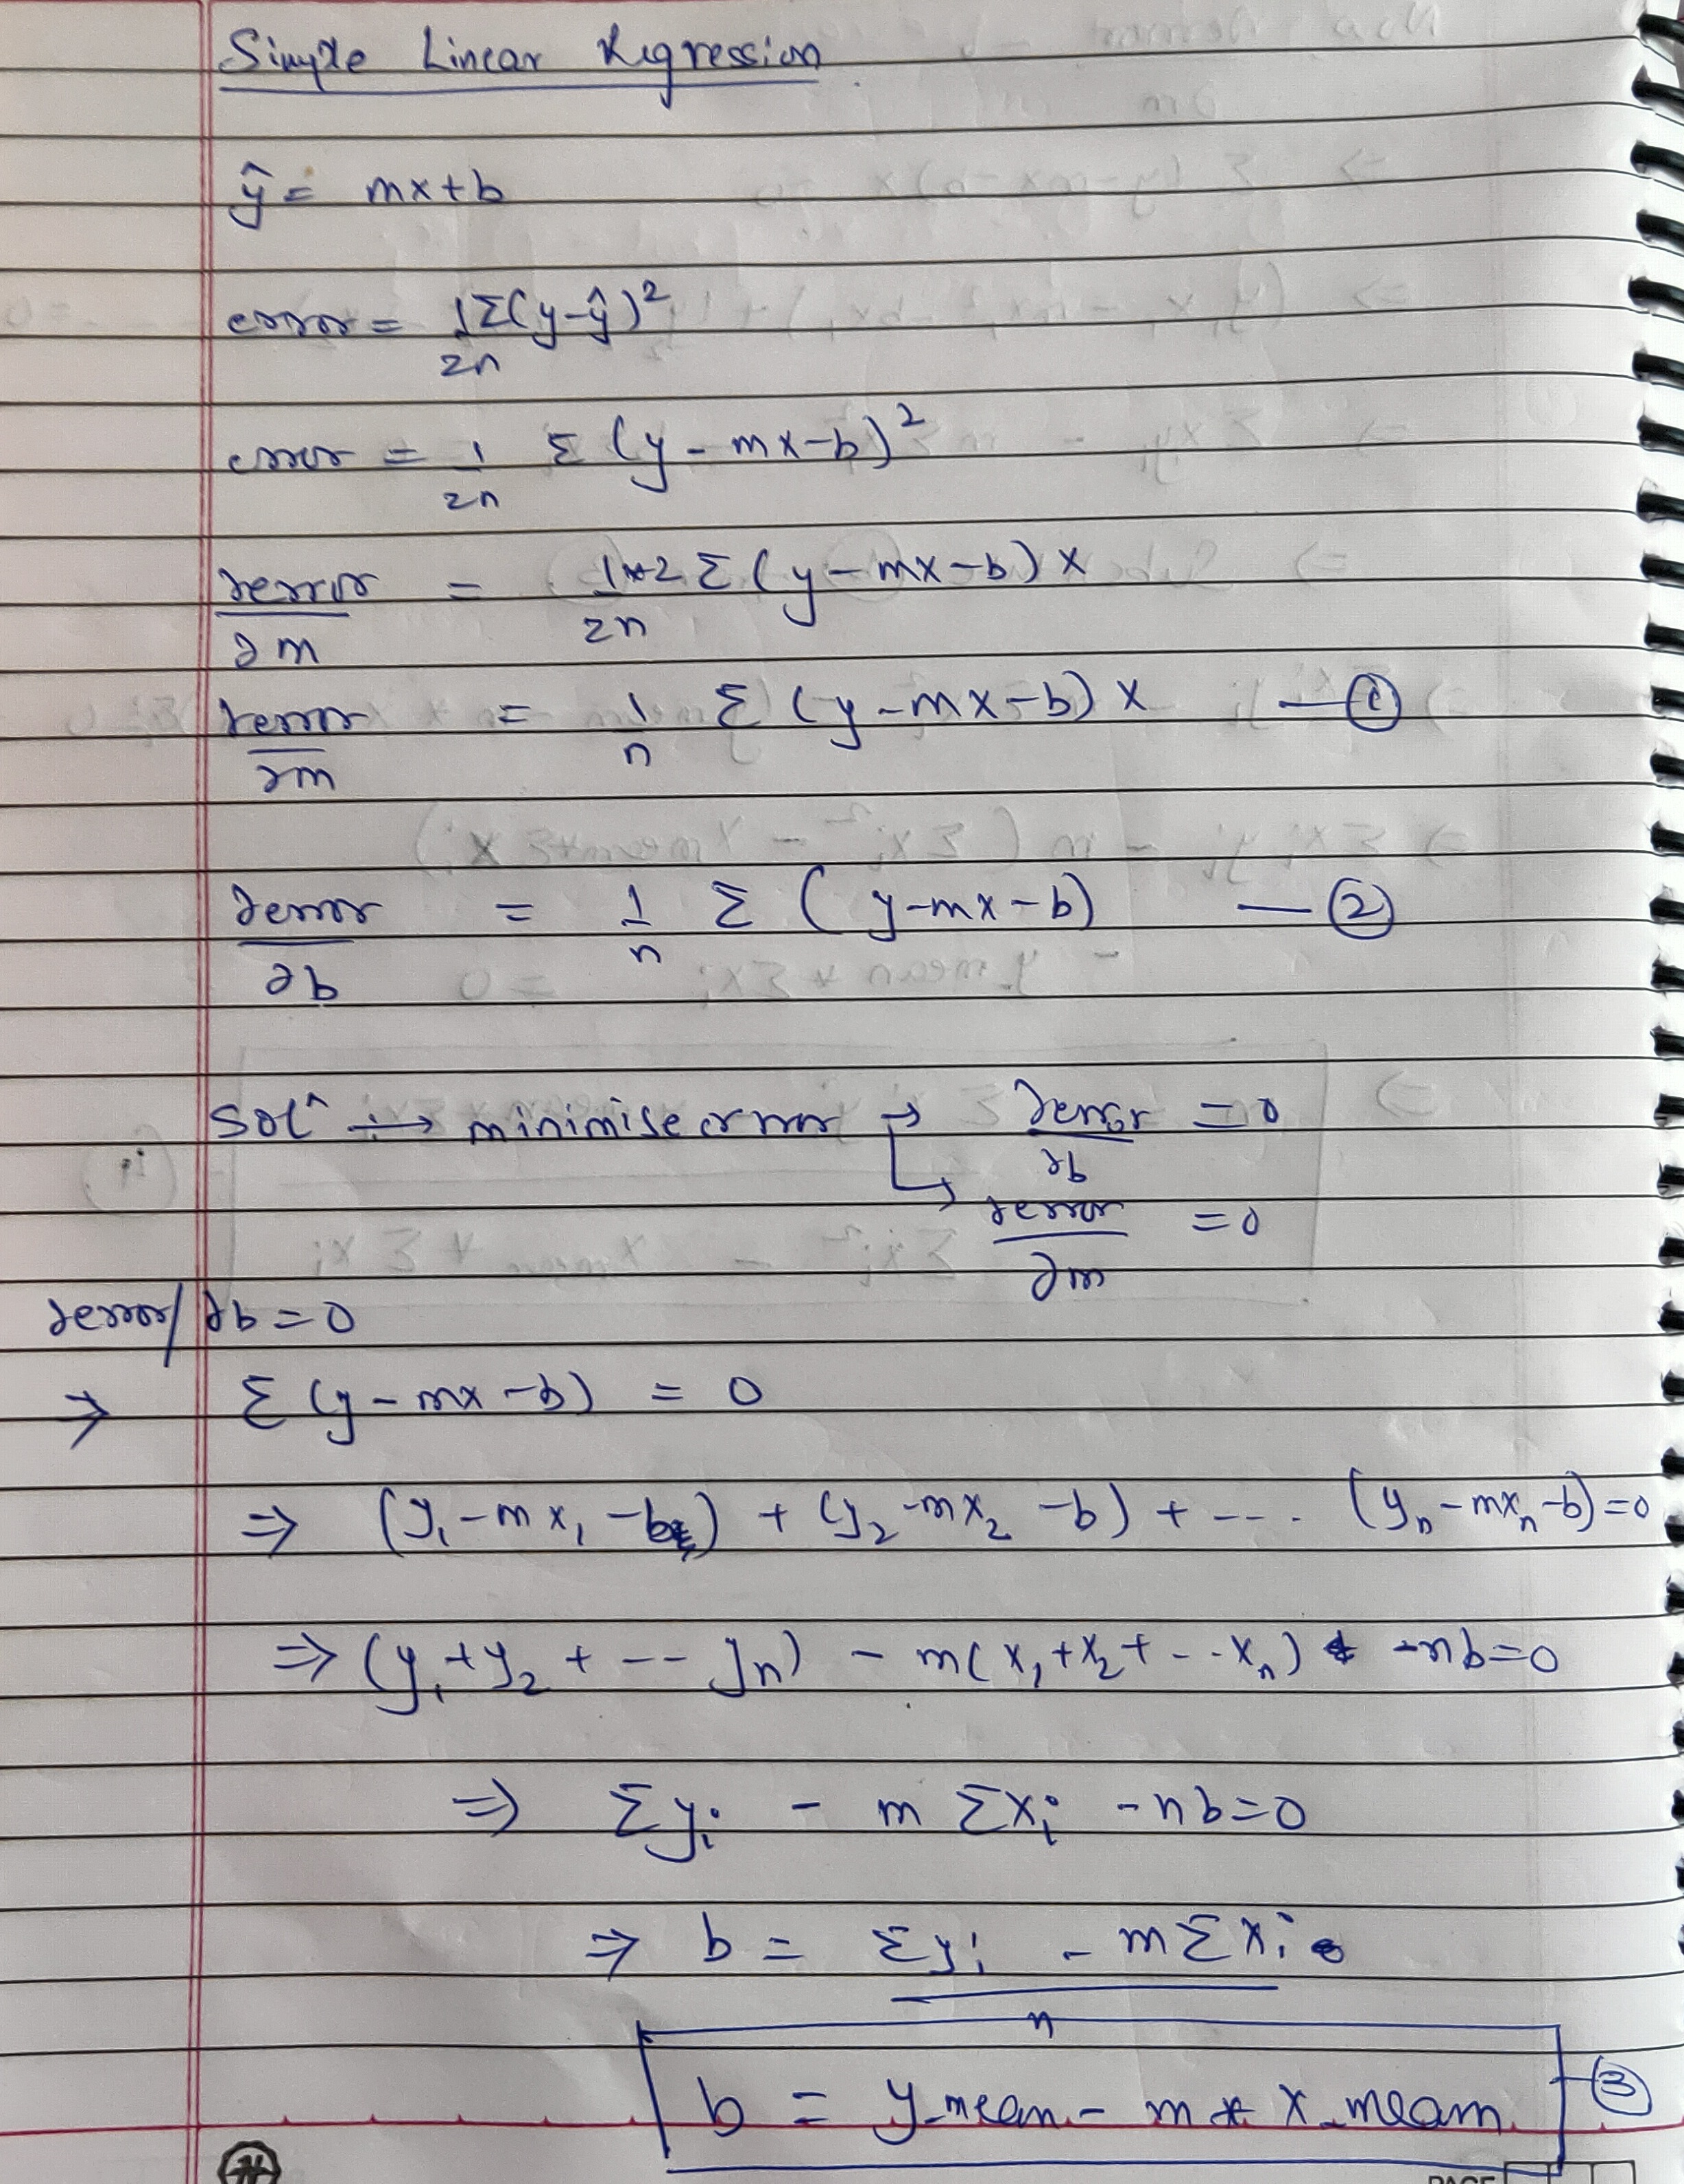 Simple Linear Regression
ŷ = mx+b
error = 1/2n Σ(y-ŷ)²
error = 1/2n Σ (y - mx-b)²
∂error/∂m = 1*2/2n Σ(y-mx-b) x
∂error/∂m = 1/n Σ (y-mx-b) x — ①
∂error/∂b = 1/n Σ (y-mx-b) — ②
Solⁿ → minimise error → ∂error/∂b = 0
↳ ∂error/∂m = 0
∂error/∂b = 0
⇒ Σ (y-mx-b) = 0
⇒ (y₁-mx₁-b) + (y₂-mx₂-b) + ---. (yₙ-mxₙ-b)=0
⇒ (y₁+y₂+ -- yₙ) - m(x₁+x₂+ --xₙ) -nb=0
⇒ Σyᵢ - m Σxᵢ -nb=0
⇒ b = Σyᵢ - mΣxᵢ / n
b = y_mean - m * x_mean — ③
PAGE